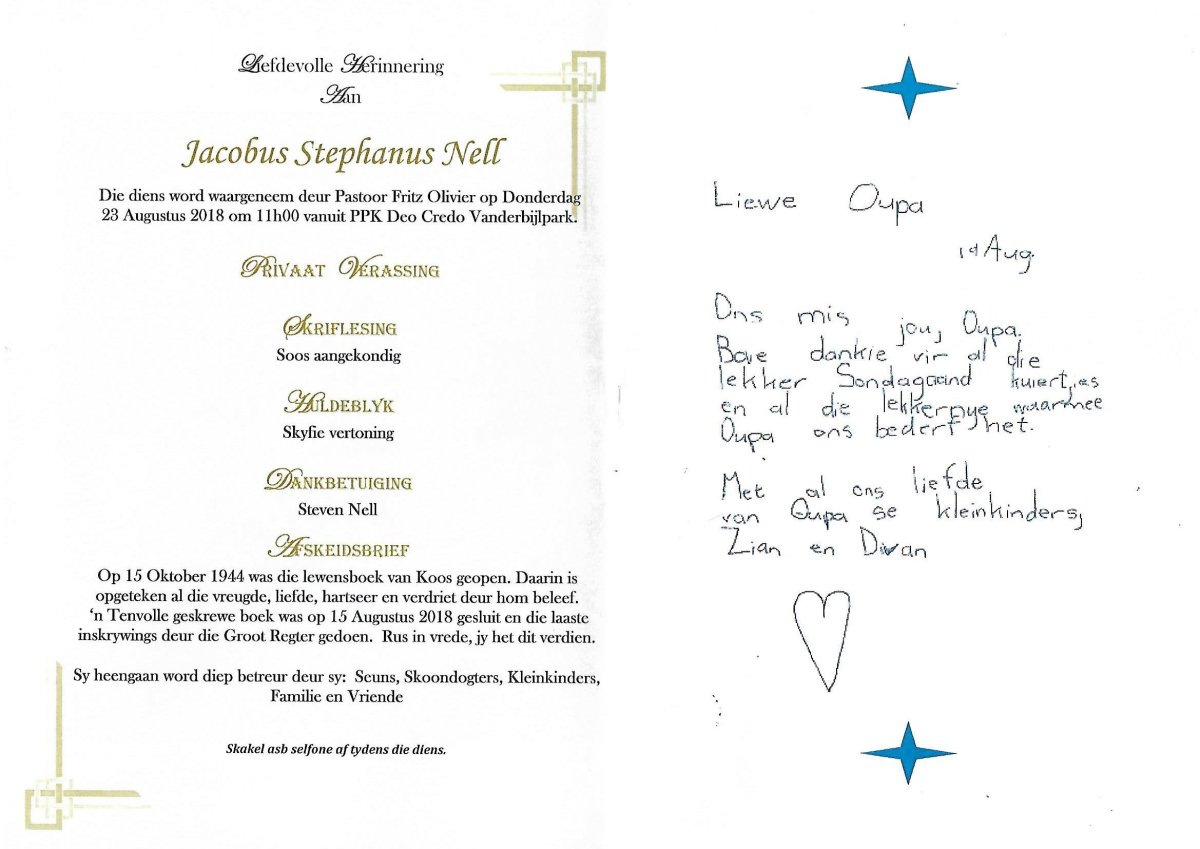 Liefdevolle Herinnering
Aan
Jacobus Stephanus Nell
Die diens word waargeneem deur Pastoor Fritz Olivier op Donderdag
23 Augustus 2018 om 11h00 vanuit PPK Deo Credo Vanderbijlpark.
PRIVAAT VERASSING
SKRIFLESING
Soos aangekondig
HULDEBLYK
Skyfie vertoning
DANKBETUIGING
Steven Nell
AFSKEIDSBRIEF
Op 15 Oktober 1944 was die lewensboek van Koos geopen. Daarin is
opgeteken al die vreugde, liefde, hartseer en verdriet deur hom beleef.
‘n Tenvolle geskrewe boek was op 15 Augustus 2018 gesluit en die laaste
inskrywings deur die Groot Regter gedoen. Rus in vrede, jy het dit verdien.
Sy heengaan word diep betreur deur sy: Seuns, Skoondogters, Kleinkinders,
Familie en Vriende
Skakel asb selfone af tydens die diens.
Liewe Oupa
19 Aug.
Ons mis jou, Oupa.
Baie dankie vir al die
lekker Sondagaand kuiertjies
en al die lekkernye waarmee
Oupa ons bederf het.
Met al ons liefde
van Oupa se kleinkinders,
Zian en Divan